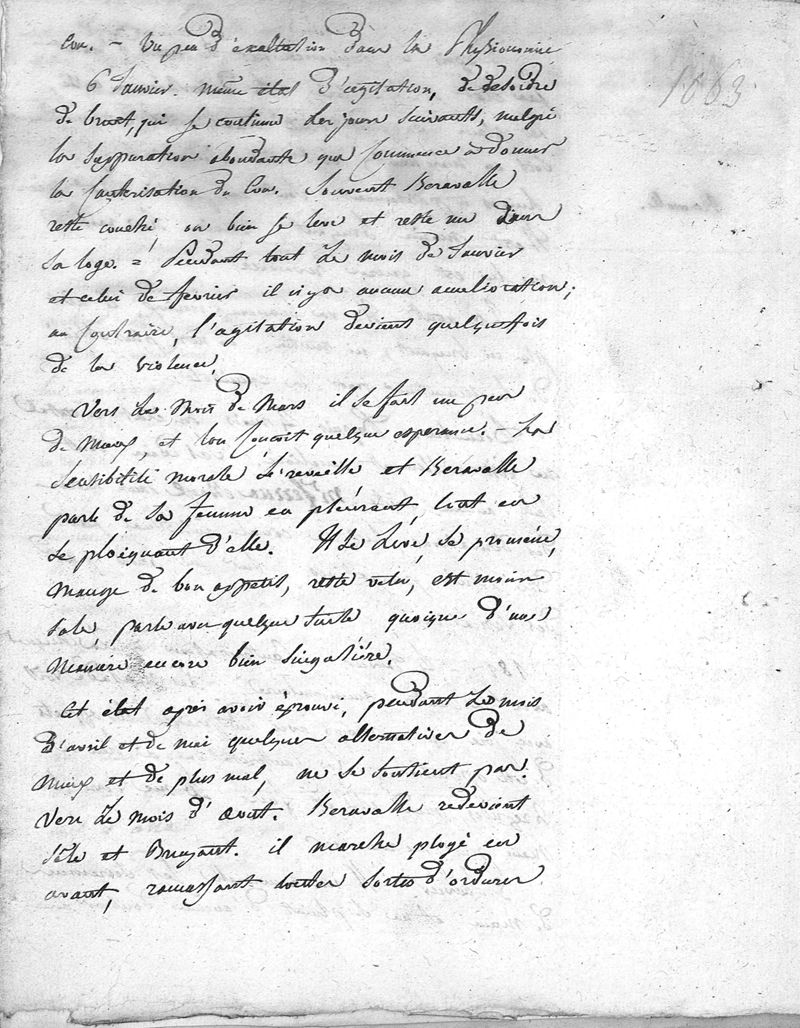 Cou. – Un peu d'exaltation dans la Physionomie
1863
6 Janvier. même état d'agitation, de desordre
de bruit, qui se continue les jours suivants, malgré
la suppuration abondante que commence à donner
la cauterisation du Cou. Souvent Beravalle
reste couché, ou bien se leve et reste nu dans
sa loge. = Pendant tout le mois de Janvier
et celui de fevrier il n'y a aucune amelioration;
au Contraire, l'agitation devient quelquefois
de la violence.
Vers le Mois de Mars il se fait un peu
de Mieux, et l'on Conçoit quelque esperance. – La
Sensibilité morale se reveille et Beravalle
parle de sa femme en pleurant, tout en
se plaignant d'elle. Il se Leve, se promene,
Mange de bon appetit, reste vetu, est moins
sale, parle avec quelque suite quoique d'une
Maniere encore bien singulière.
Cet état après avoir éprouvé, pendant les mois
d'avril et de mai quelques alternatives de
Mieux et de plus mal, ne se soutient pas.
Vers le mois d'aout. Beravalle redevient
sâle et Bruyant. il marche ployé en
avant, ramassant toutes sortes d'ordures